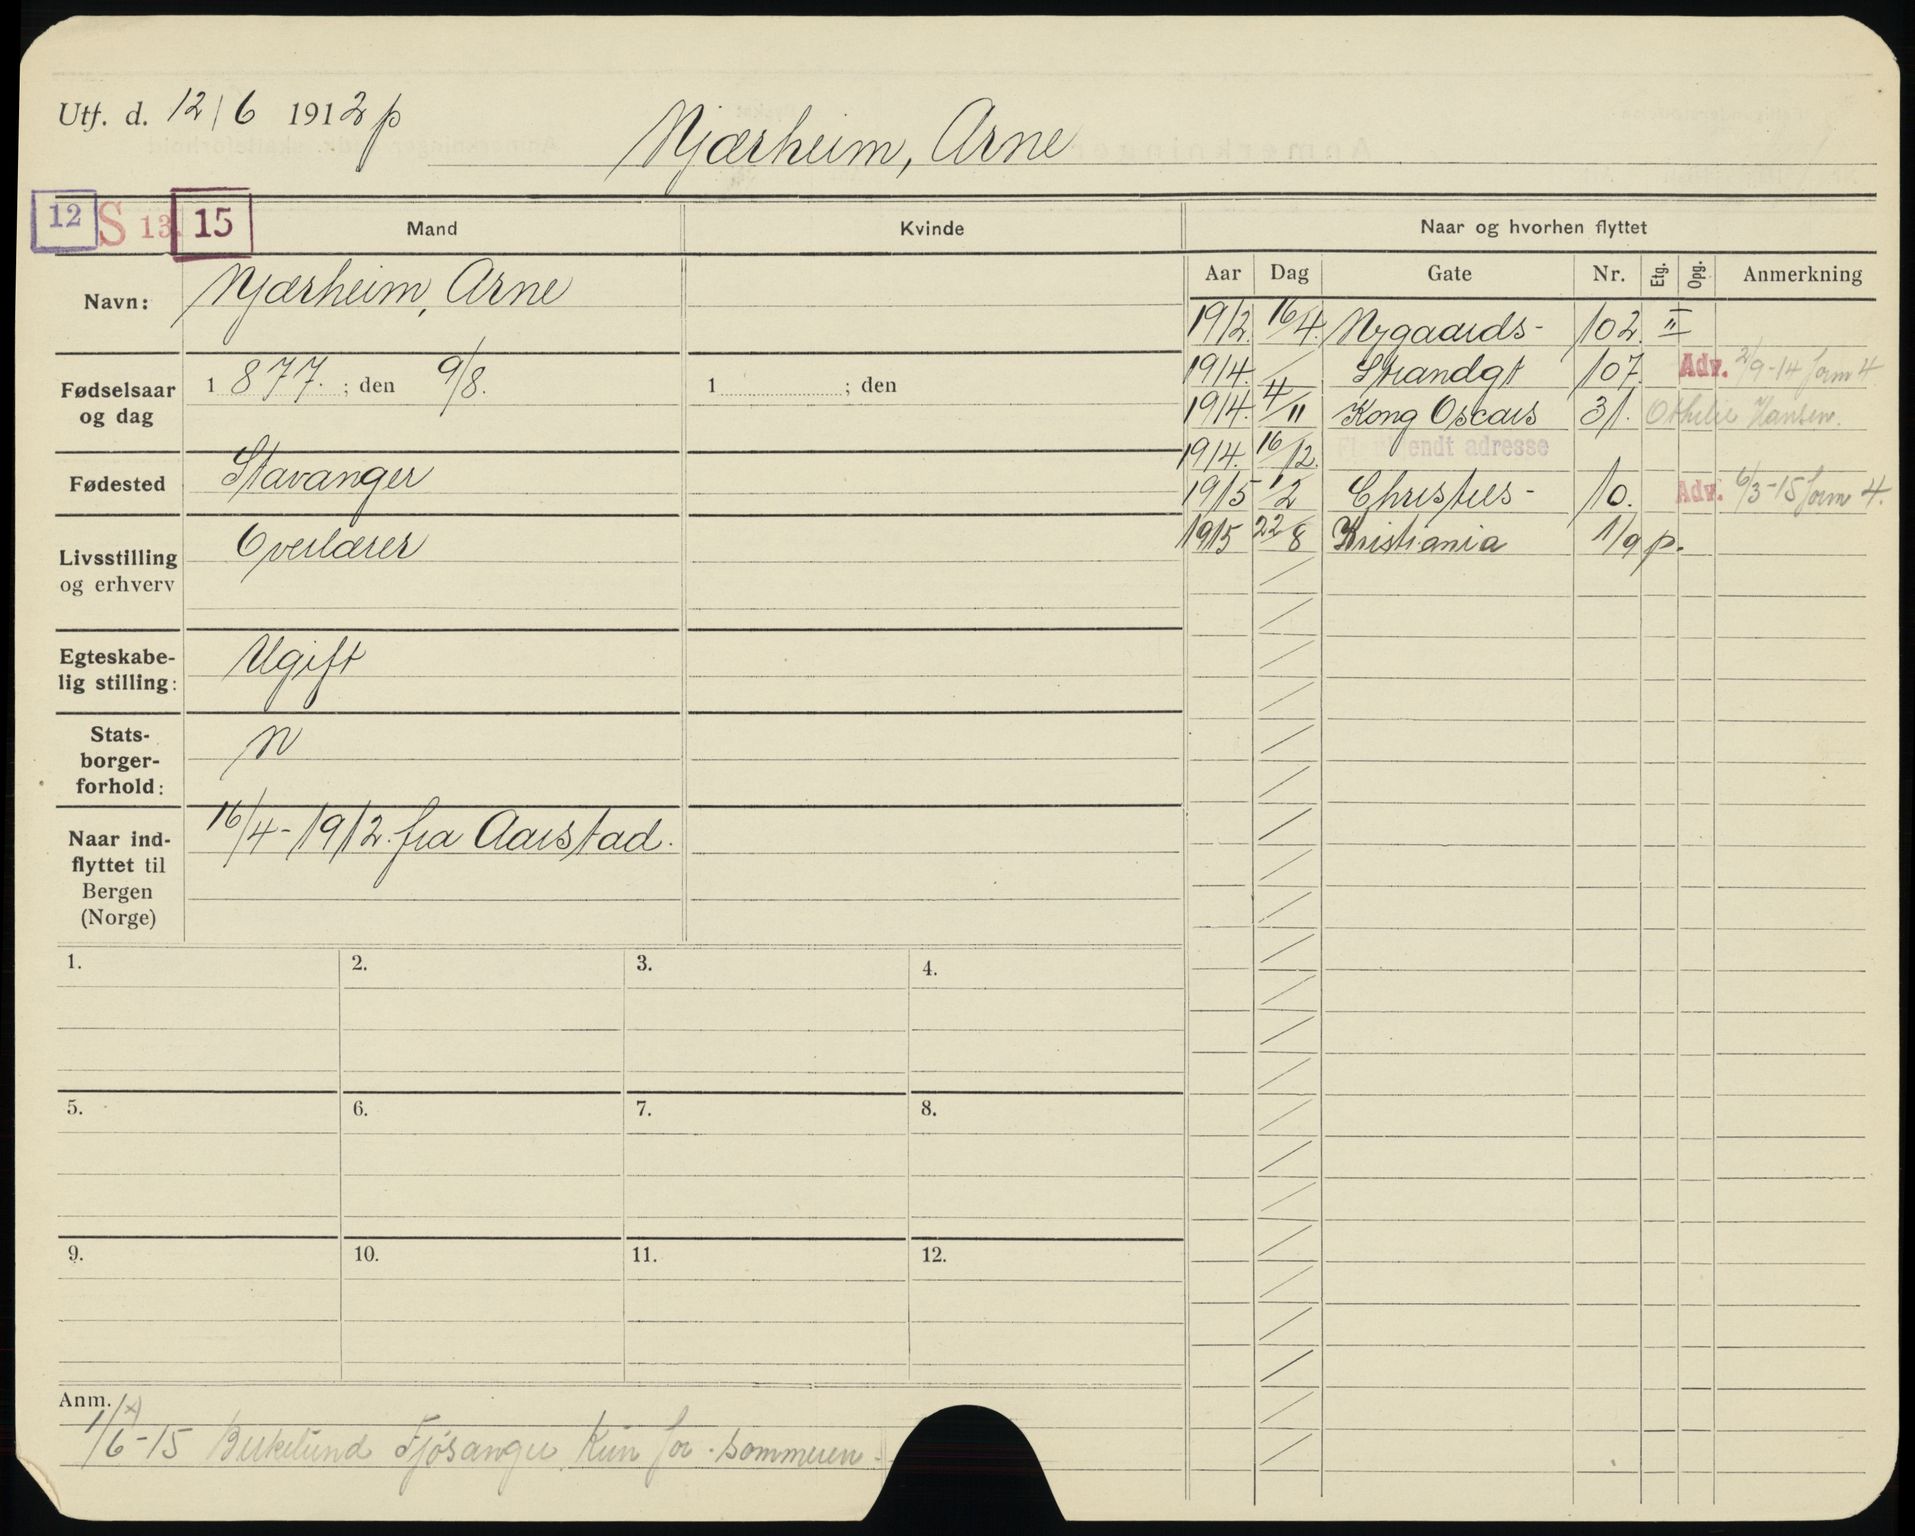 Utf. d. 12/6 1912 p
Njærheim, Arne
12 S 13. 15
Mand
Kvinde
Naar og hvorhen flyttet
Aar Dag Gate Nr. Etg. Opg. Anmerkning
Navn: Njærheim, Arne
1912. 16/4. Nygaards- 102. II "
1914. Strandgt 107. Adv. 2/9-14 form 4
Fødselsaar og dag
1877. ; den 9/8.
1 ; den
1914. 4/11 Kong Oscars 31. Othilie Hansen.
1914. 16/12. endt adresse
Fødested Stavanger
1915 1/2 Christies- 10. Adv. 6/3-15 form 4.
1915 22/8 Kristiania 1/9 p.
Livsstilling og erhverv
Overlærer
Egteskabe-
lig stilling:
Ugift
Stats-
borger-
forhold:
N
Naar ind-
flyttet til
Bergen
(Norge)
16/4-1912. fra Aarstad.
1. 2. 3. 4.
5. 6. 7. 8.
9. 10. 11. 12.
Anm.
1/6-15 Birkelund Fjøsanger Kun for sommeren.